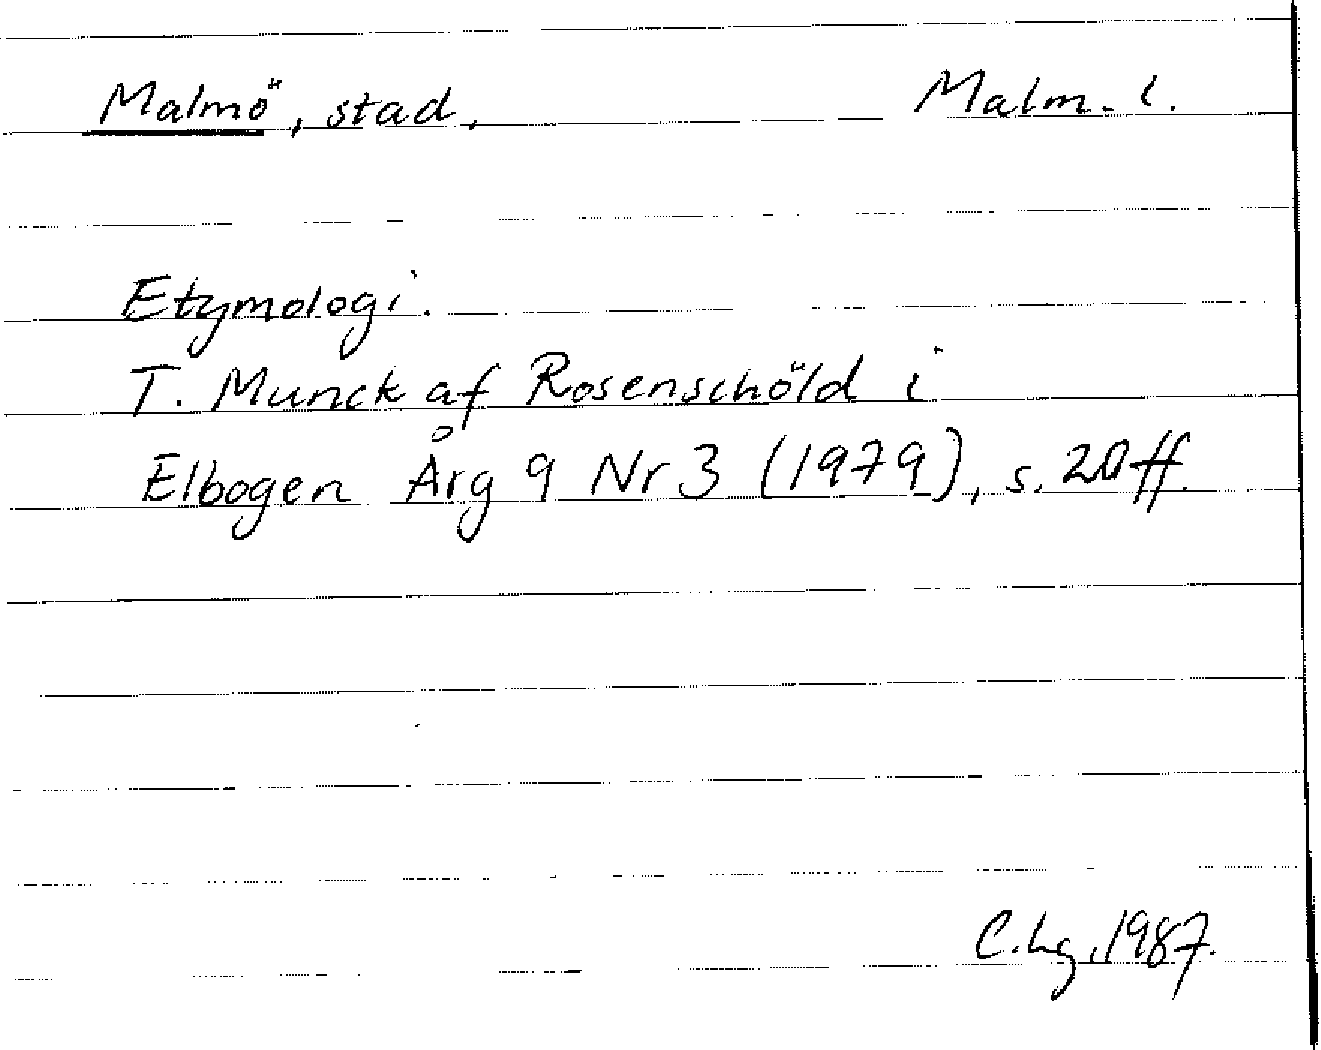 Malmö, stad, Malm. l.
Etymologi.
T. Munck af Rosenschöld i
Elbogen Årg 9 Nr 3 (1979), s. 20 ff.
C. Lg, 1987.